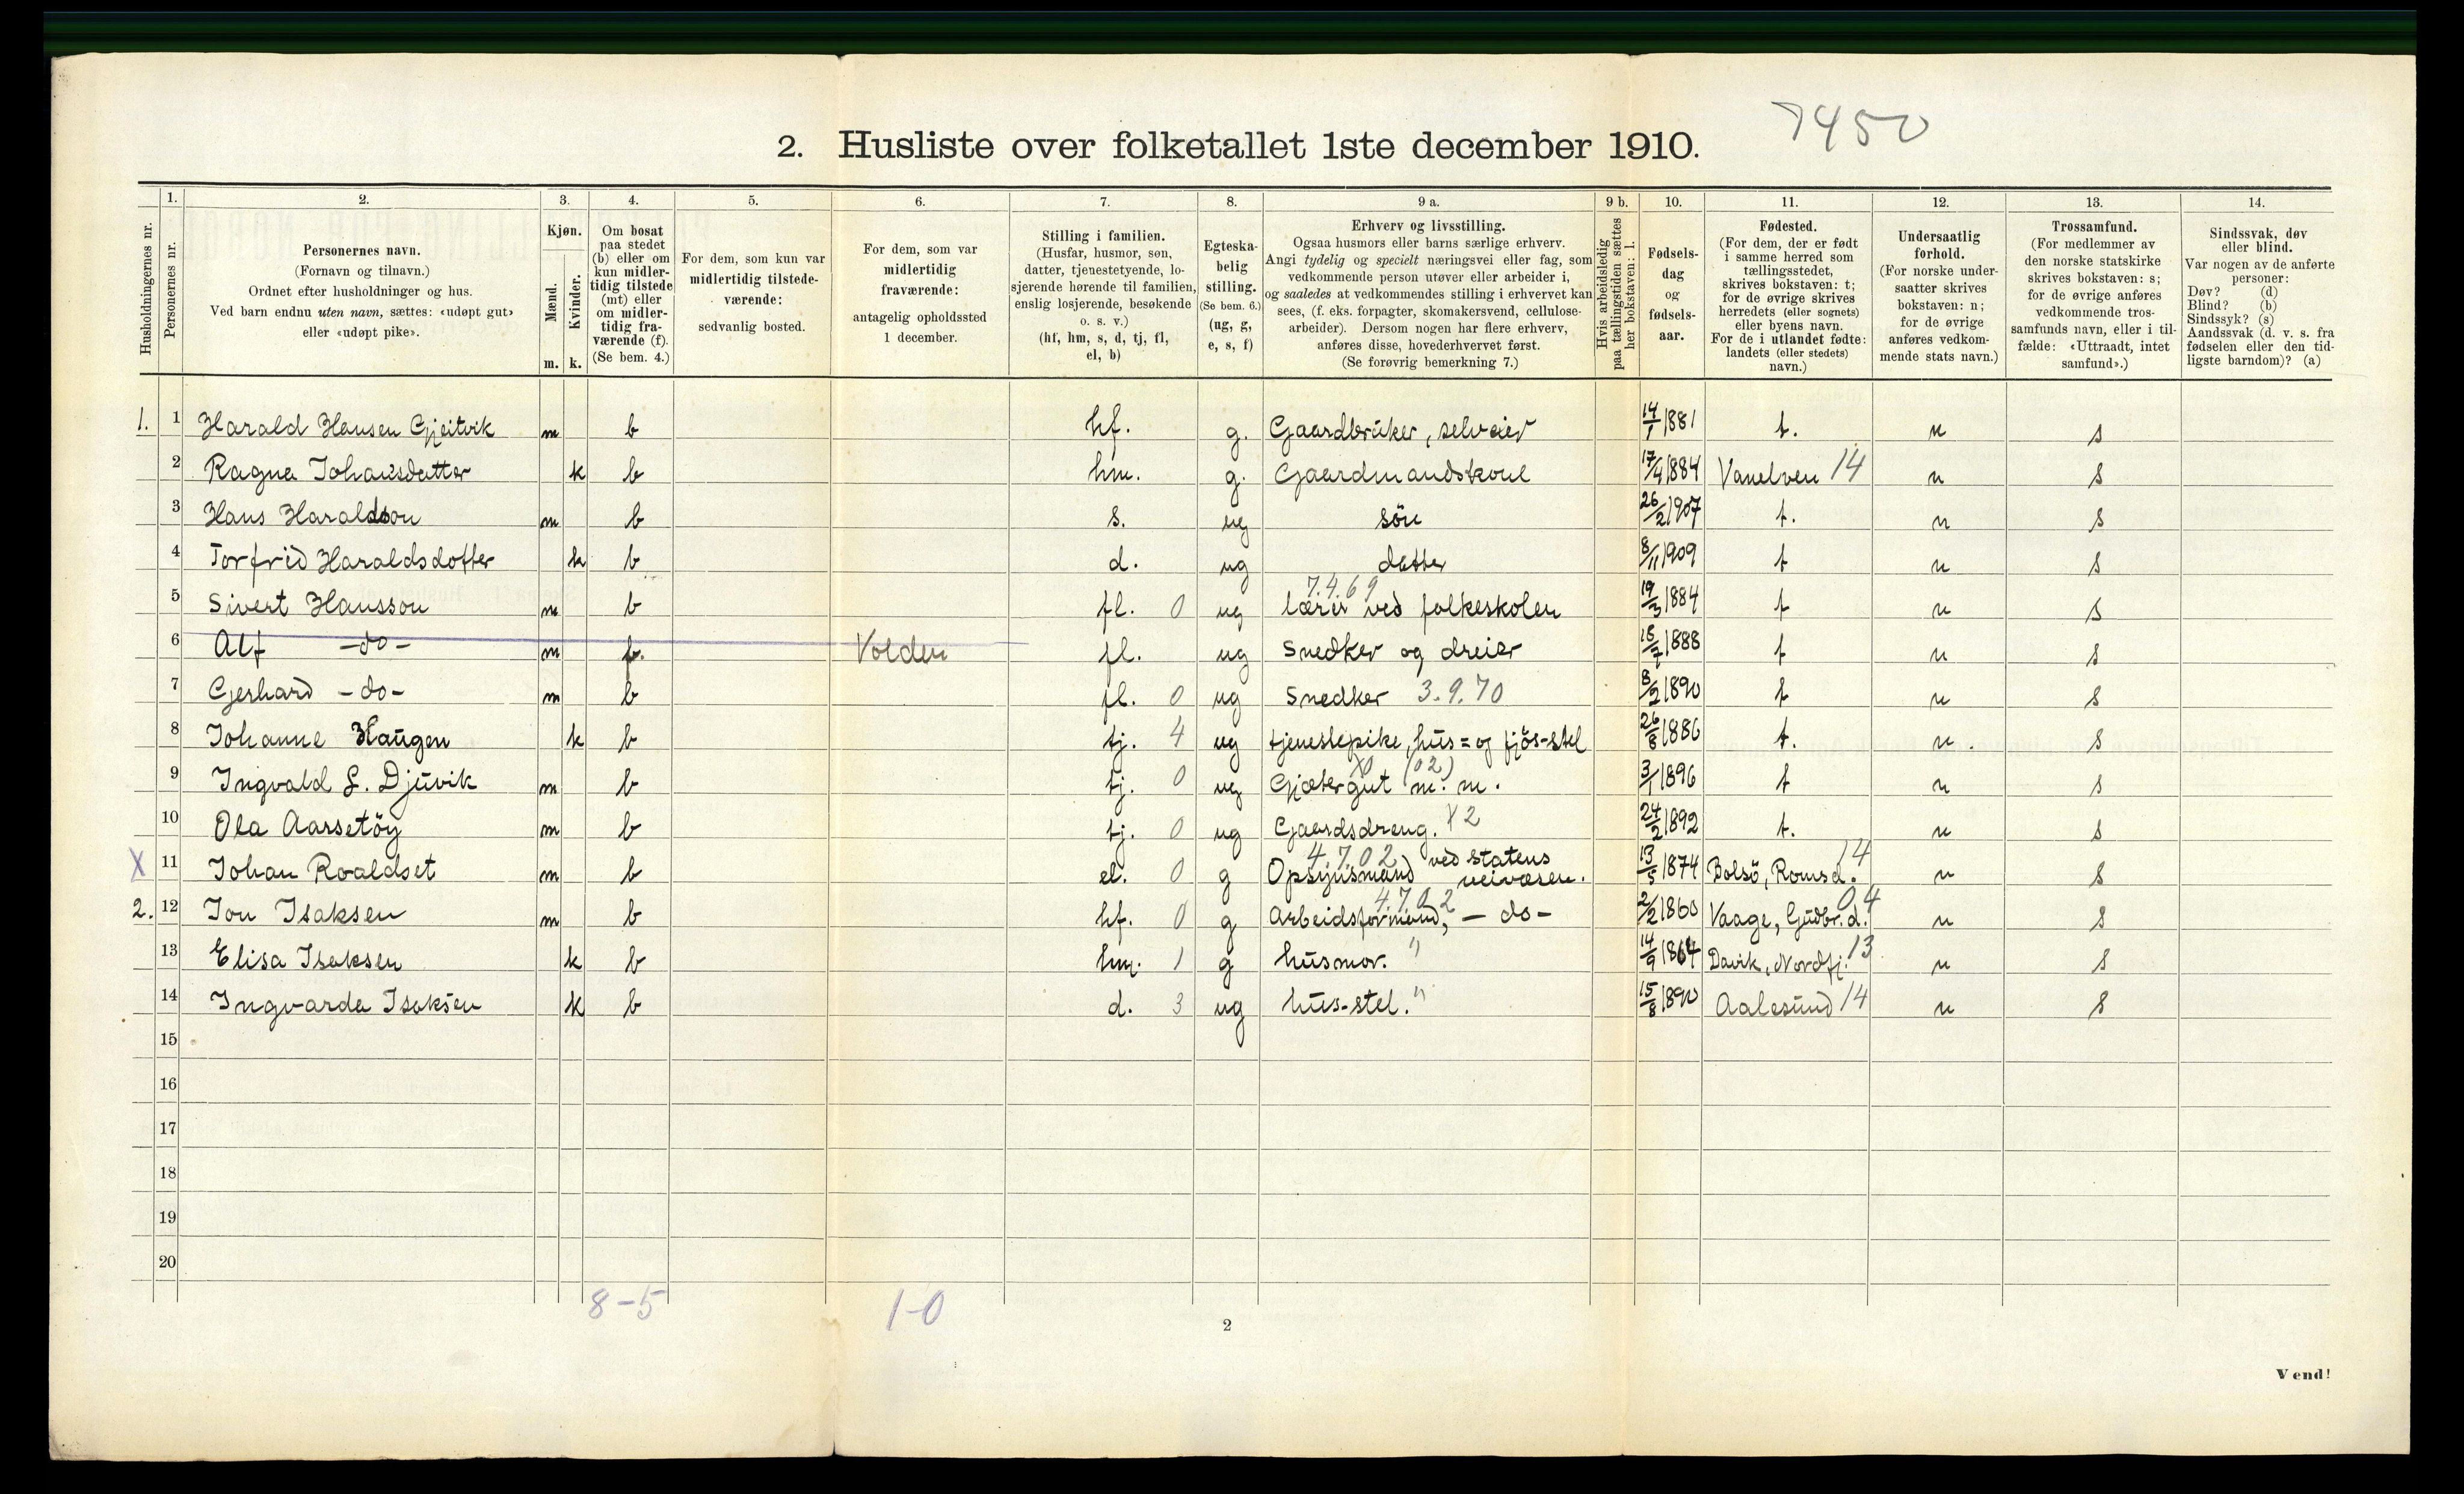 7450
2. Husliste over folketallet 1ste december 1910.
Husholdningernes nr.
1.
Personernes nr.
2.
Personernes navn.
(Fornavn og tilnavn.)
Ordnet efter husholdninger og hus.
Ved barn endnu uten navn, sættes: «udøpt gut»
eller «udøpt pike».
3.
Kjøn.
Mænd.
m.
Kvinder.
k.
4.
Om bosat
paa stedet
(b) eller om
kun midler-
tidig tilstede
(mt) eller
om midler-
tidig fra-
værende (f).
(Se bem. 4.)
5.
For dem, som kun var
midlertidig tilstede-
værende:
sedvanlig bosted.
6.
For dem, som var
midlertidig
fraværende:
antagelig opholdssted
1 december.
7.
Stilling i familien.
(Husfar, husmor, søn,
datter, tjenestetyende, lo-
sjerende hørende til familien,
enslig losjerende, besøkende
o. s. v.)
(hf, hm, s, d, tj, fl,
el, b)
8.
Egteska-
belig
stilling.
(Se bem. 6.)
(ug, g,
e, s, f)
9 a.
Erhverv og livsstilling.
Ogsaa husmors eller barns særlige erhverv.
Angi tydelig og specielt næringsvei eller fag, som
vedkommende person utøver eller arbeider i,
og saaledes at vedkommendes stilling i erhvervet kan
sees, (f. eks. forpagter, skomakersvend, cellulose-
arbeider). Dersom nogen har flere erhverv,
anføres disse, hovederhvervet først.
(Se forøvrig bemerkning 7.)
9 b.
Hvis arbeidsledig
paa tællingstiden sættes
her bokstaven: l.
10.
Fødsels-
dag
og
fødsels-
aar.
11.
Fødested.
(For dem, der er født
i samme herred som
tællingsstedet,
skrives bokstaven: t;
for de øvrige skrives
herredets (eller sognets)
eller byens navn.
For de i utlandet fødte:
landets (eller stedets)
navn.)
12.
Undersaatlig
forhold.
(For norske under-
saatter skrives
bokstaven: n;
for de øvrige
anføres vedkom-
mende stats navn.)
13.
Trossamfund.
(For medlemmer av
den norske statskirke
skrives bokstaven: s;
for de øvrige anføres
vedkommende tros-
samfunds navn, eller i til-
fælde: «Uttraadt, intet
samfund».)
14.
Sindssvak, døv
eller blind.
Var nogen av de anførte
personer:
Døv? (d)
Blind? (b)
Sindssyk? (s)
Aandssvak (d. v. s. fra
fødselen eller den tid-
ligste barndom)? (a)
1. 1 Harald Hansen Gjeitvik m b hf. g. Gaardbruker, selveier 14/1 1881 t. n s
2 Ragna Johansdatter k b hm. g. Gaardmandskone 17/4 1884 Vanelven 14 n s
3 Hans Haraldsson m b s. ug sön 26/2 1907 t. n s
4 Torfrid Haraldsdotter k b d. ug datter 8/11 1909 t n s
7.4.69
5 Sivert Hansson m b fl. 0 ug lærer ved folkeskolen 19/3 1884 t n s
6 Alf -do- m f. Volden fl. ug Snedker og dreier 15/7 1888 t n s
7 Gerhard -do- m b fl. 0 ug Snedker 3.9.70 8/2 1890 t n s
8 Johanne Haugen k b tj. 4 ug tjenestepike, hus= og fjös-stel 26/8 1886 t. n. s
X0 (02)
9 Ingvald L. Djuvik m b tj. 0 ug Gjætergut m. m. 3/1 1896 t n s
10 Ola Aarsetöy m b tj. 0 ug Gaardsdreng. X2 24/2 1892 t. n s
4.7.02 14
X 11 Johan Roaldset m b el. 0 g Opsynsmand ved statens veivæsen. 13/5 1874 Bolsö, Romsd. n s
4.7.02 04
2. 12 Jon Isaksen m b hf. 0 g Arbeidsformand, -do- 2/2 1860 Vaage, Gudbr.d. n s
13 Elisa Isaksen k b hm. 1 g husmor. " 14/9 1864 Davik, Nordfj. 13 n s
14 Ingvarda Isaksen k b d. 3 ug hus-stel. " 15/8 1890 Aalesund 14 n s
15
16
17
18
19
20
8-5 1-0
2
Vend!